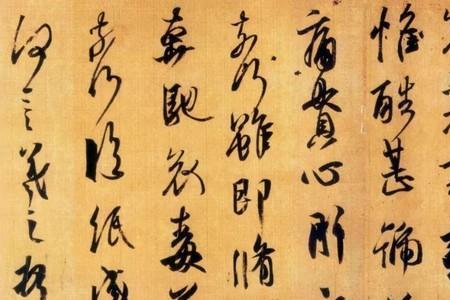 惟酷甚號
痛貫心肝
奈何雖即脩
奔馳哀毒益
奈何臨紙感
何言羲之頓